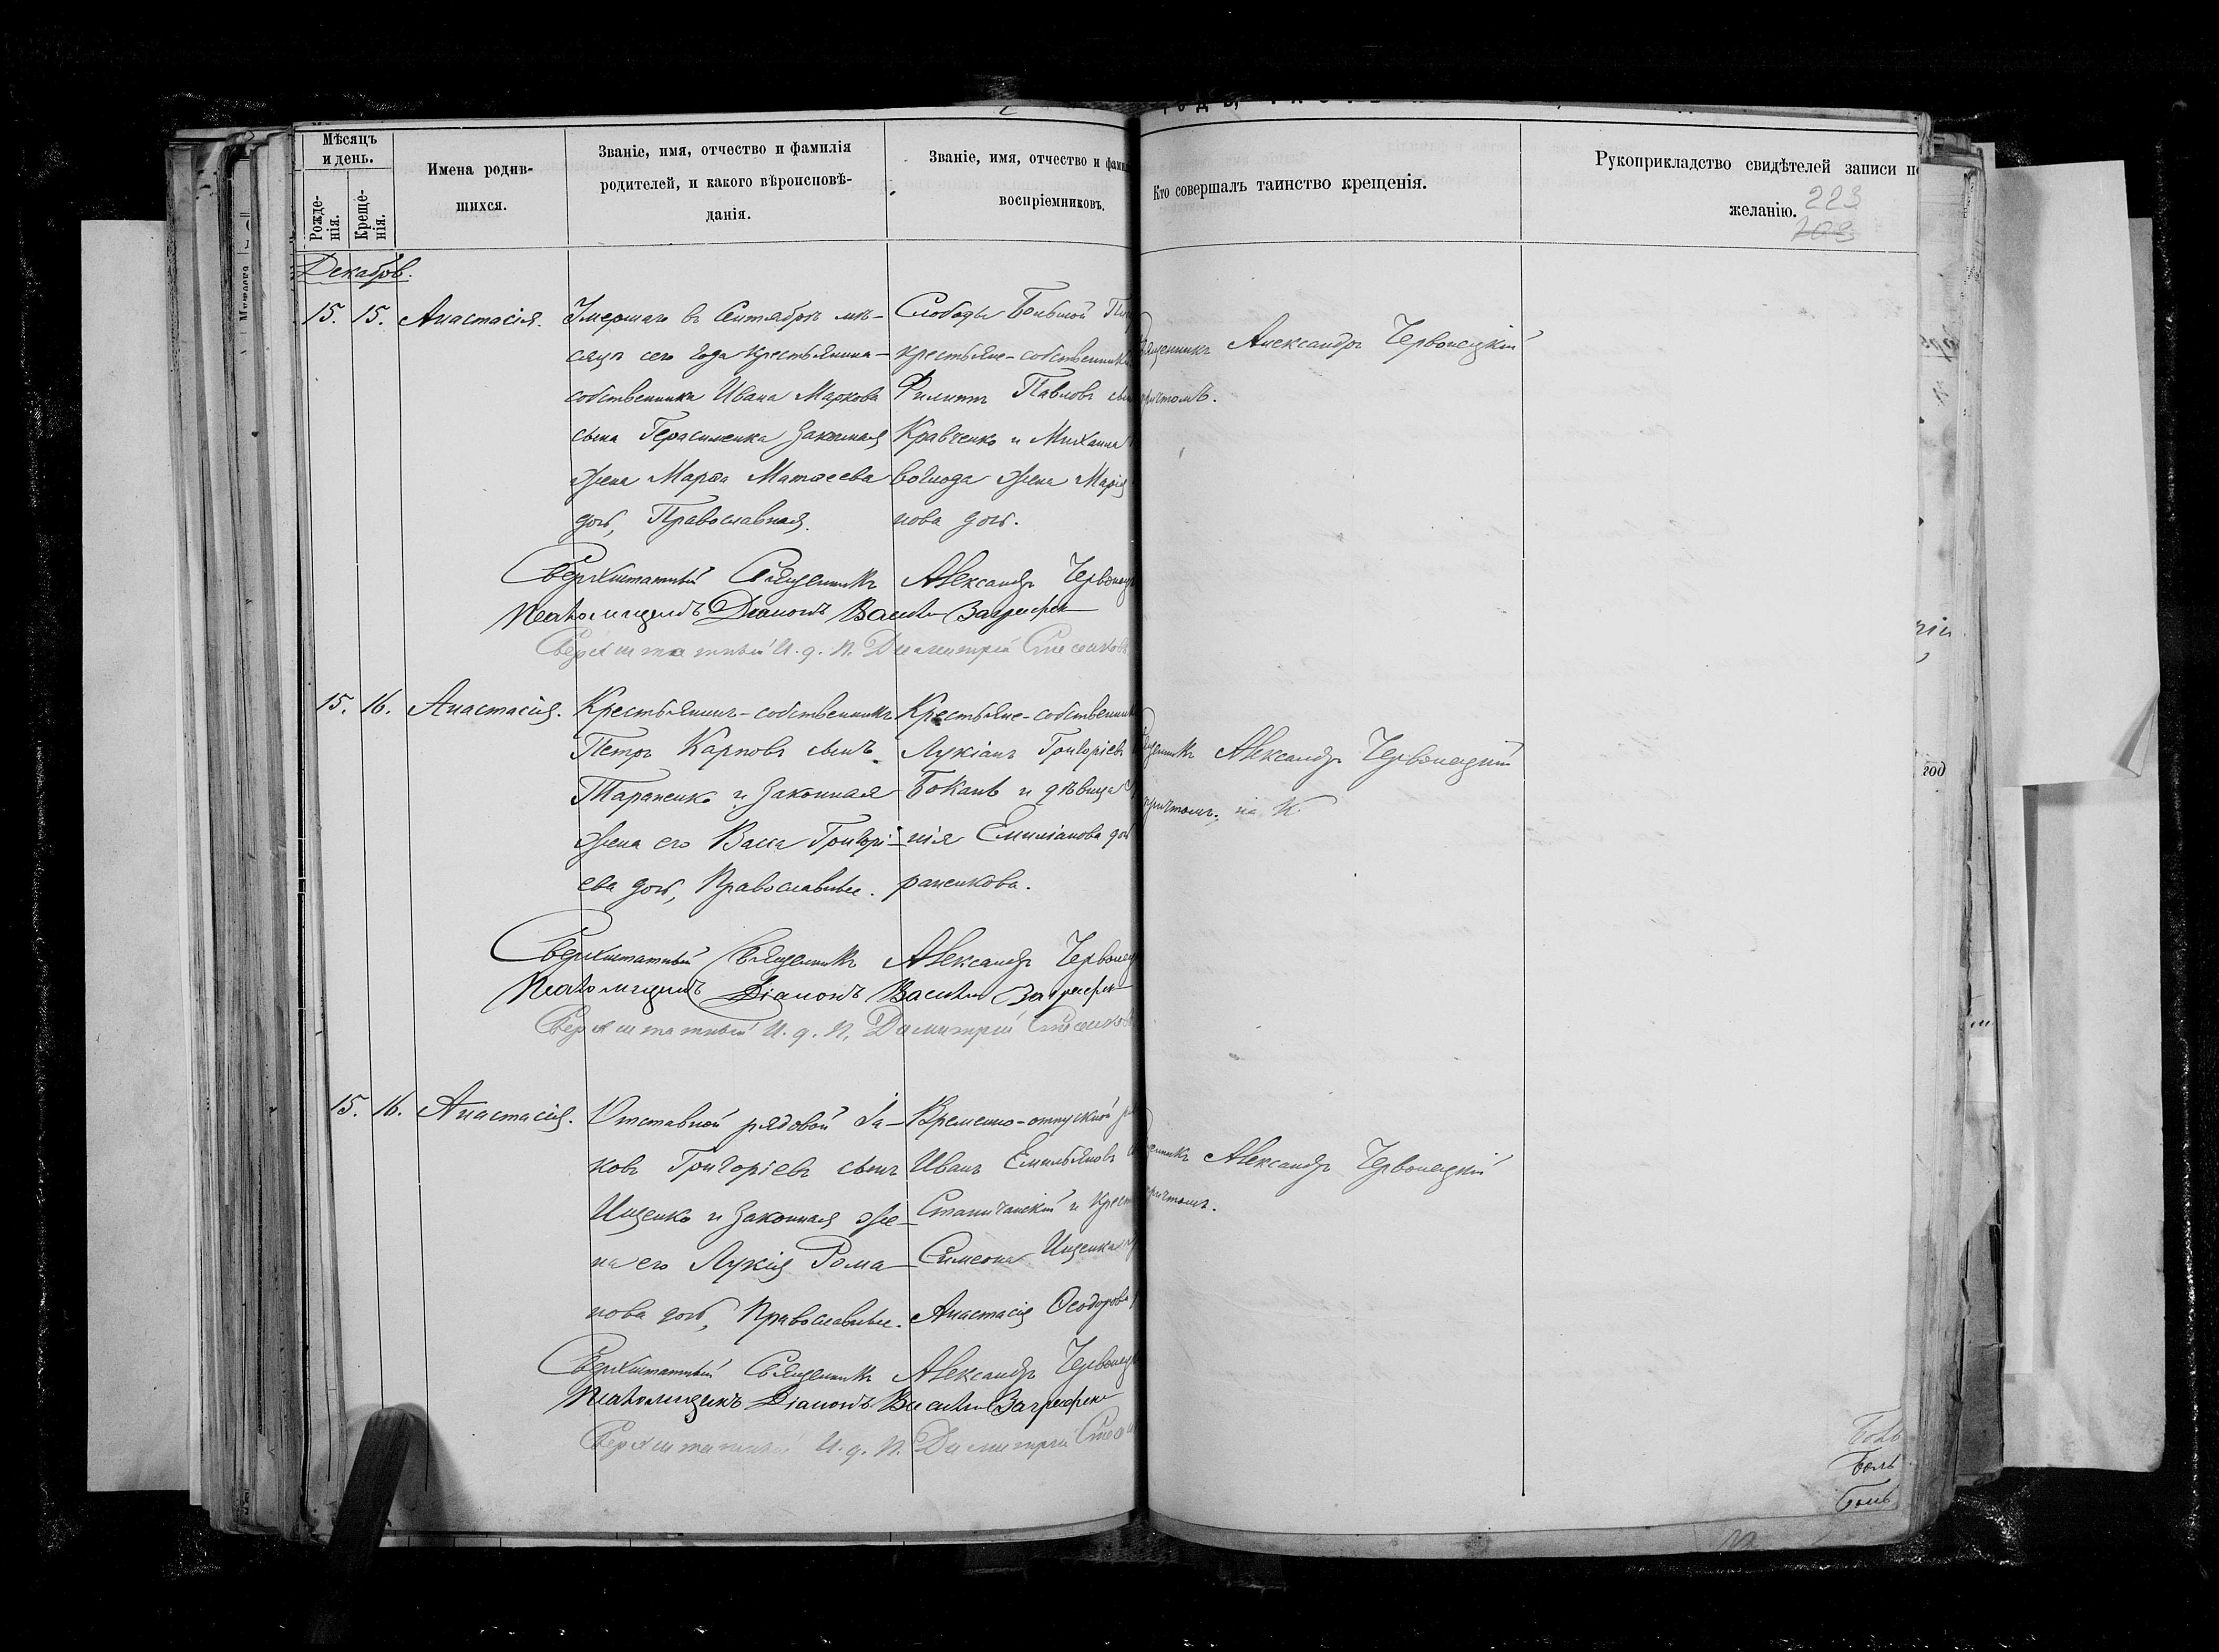 Мѣсяцъ
и день.
Рожде-
нія.
Креще-
нія.
Имена родив-
шихся.
Званіе, имя, отчество и фамилія
родителей, и какого вѣроисповѣ-
данія.
Званіе, имя, отчество и
воспріемниковъ.
Кто совершалъ таинство крещенія.
Рукоприкладство свидѣтелей записи
желанію.
223
203
Декабрь.
15. 15. Анастасія.
Умершаго въ Сентябрѣ мѣ-
сяцѣ сего года крестьянина-
собственника Ивана Маркова
сына Герасименка законная
жена Марѳа Матѳеева
дочь, Православная.
Слободы Большой
крестьяне-собственники
Филиппъ Павловъ
Кравченко и Михаила
жена Марія
нова дочь.
Александръ Червонецкій
причтомъ.
Сверхштатный Священникъ Александръ
Псаломщикъ Діаконъ Василій
Сверхштатный И. д. П. Димитрій
15. 16. Анастасія.
Крестьянинъ-собственникъ
Петръ Карповъ сынъ
Тараненко и законная
жена его Васса Григорі-
ева дочь, Православные.
Крестьяне-собственники
Лукіанъ Григоріевъ
Бокань и дѣвица
нія Емиліанова
раненкова.
Александръ Червонецкій
причтомъ.
Сверхштатный Священникъ Александръ
Псаломщикъ Діаконъ Василій
Сверхштатный И. д. П. Димитрій
15. 16. Анастасія.
Отставной рядовой Іа-
ковъ Григоріевъ сынъ
Ищенко и законная же-
на его Лукія Рома-
нова дочь, Православные.
Временно-отпускной
Иванъ Емельяновъ
Станичанскій и
Симеона Ищенка
Анастасія Ѳеодорова
Александръ Червонецкій
причтомъ.
Сверхштатный Священникъ Александръ
Псаломщикъ Діаконъ Василій
Сверхштатный И. д. П. Димитрій
год